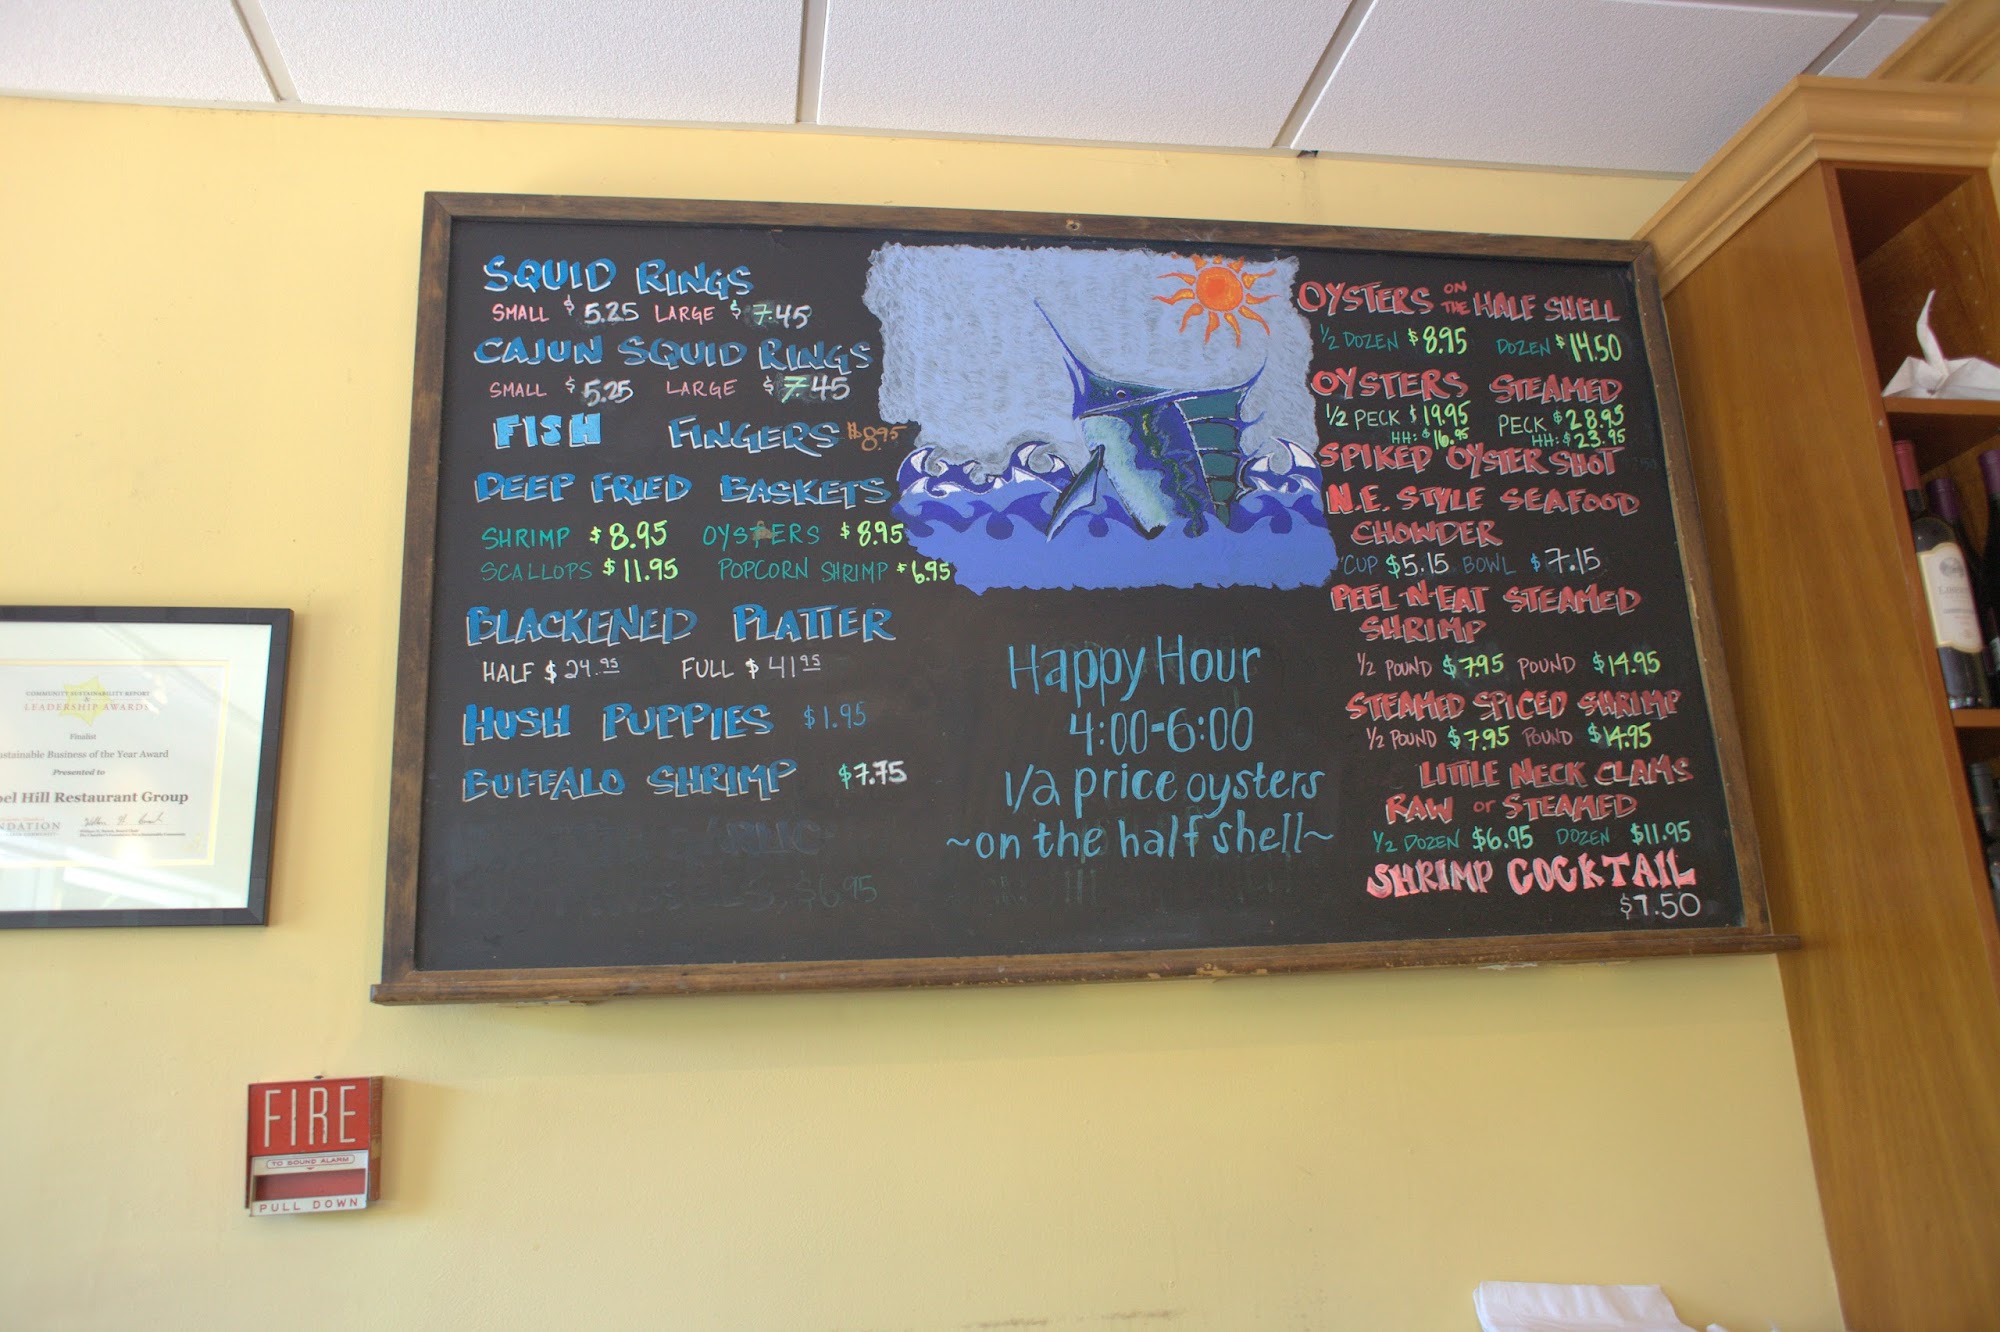 SQUID RINGS
SMALL $5.25 LARGE $7.45
CAJUN SQUID RINGS
SMALL $5.25 LARGE $7.45
FISH FINGERS $8.95
DEEP FRIED BASKETS
SHRIMP $8.95 OYSTERS $8.95
SCALLOPS $11.95 POPCORN SHRIMP $6.95
BLACKENED PLATTER
HALF $24.95 FULL $41.95
HUSH PUPPIES $1.95
BUFFALO SHRIMP $7.75
$6.95
Happy Hour
4:00-6:00
1/2 price oysters
~on the half shell~
OYSTERS ON THE HALF SHELL
1/2 DOZEN $8.95 DOZEN $14.50
OYSTERS STEAMED
1/2 PECK $19.95 PECK $28.95
HH: $16.95 HH: $23.95
SPIKED OYSTER SHOT
N.E. STYLE SEAFOOD
CHOWDER
CUP $5.15 BOWL $7.15
PEEL-N-EAT STEAMED
SHRIMP
1/2 POUND $7.95 POUND $14.95
STEAMED SPICED SHRIMP
1/2 POUND $7.95 POUND $14.95
LITTLE NECK CLAMS
RAW or STEAMED
1/2 DOZEN $6.95 DOZEN $11.95
SHRIMP COCKTAIL
$7.50
COMMUNITY SUSTAINABILITY REPORT
LEADERSHIP AWARDS
Finalist
Business of the Year Award
Presented to
Hill Restaurant Group
FIRE
TO SOUND ALARM
PULL DOWN